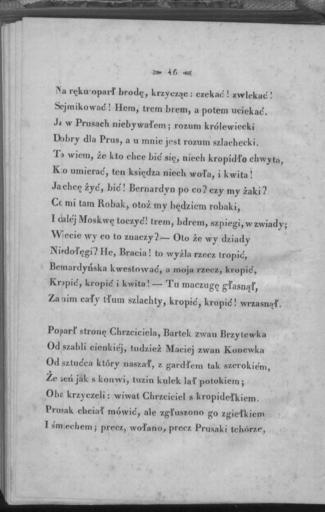 46
Na ręku oparł brodę, krzycząc: czekać! zwlekać!
Sejmikować! Hem, trem brem, a potem uciekać.
Ja w Prusach niebywałem; rozum królewiecki
Dobry dla Prus, a u mnie jest rozum szlachecki.
To wiem, że kto chce bić się, niech kropidło chwyta,
Kto umierać, ten księdza niech woła, i kwita!
Ja chcę żyć, bić! Bernardyn po co? czy my żaki?
Co mi tam Robak, otoż my będziem robaki,
I daléj Moskwę toczyć! trem, bdrem, szpiegi, w zwiady;
Wiecie wy co to znaczy?— Oto że wy dziady
Niedołęgi? He, Bracia! to wyżła rzecz tropić,
Bernardyńska kwestować, a moja rzecz, kropić,
Kropić, kropić i kwita! — Tu maczugę głasnął,
Za nim cały tłum szlachty, kropić, kropić! wrzasnął.
Poparł stronę Chrzciciela, Bartek zwan Brzytewka
Od szabli cienkiéj, tudzież Maciej zwan Konewka
Od sztućca który naszał, z gardłem tak szerokiém,
Że zeń jak s konwi, tuzin kulek lał potokiem;
Oba krzyczeli: wiwat Chrzciciel s kropidełkiem.
Prusak chciał mówić, ale zgłuszono go zgiełkiem
I śmiechem; precz, wołano, precz Prusaki tchórze,